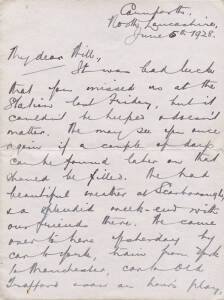 Carnforth,
North Lancashire
June 6th 1928.
My dear Hill,
It was bad luck
that you missed us at the
Station last Friday, but it
couldn't be helped & doesn't
matter. We may see you once
again if a couple of days
can be found later on that
should be filled. We had
beautiful weather at Scarborough,
& a splendid week-end with
our friends there. We came
over to here yesterday by
car to York, train from York
to Manchester, car to Old
Trafford an hour's play,